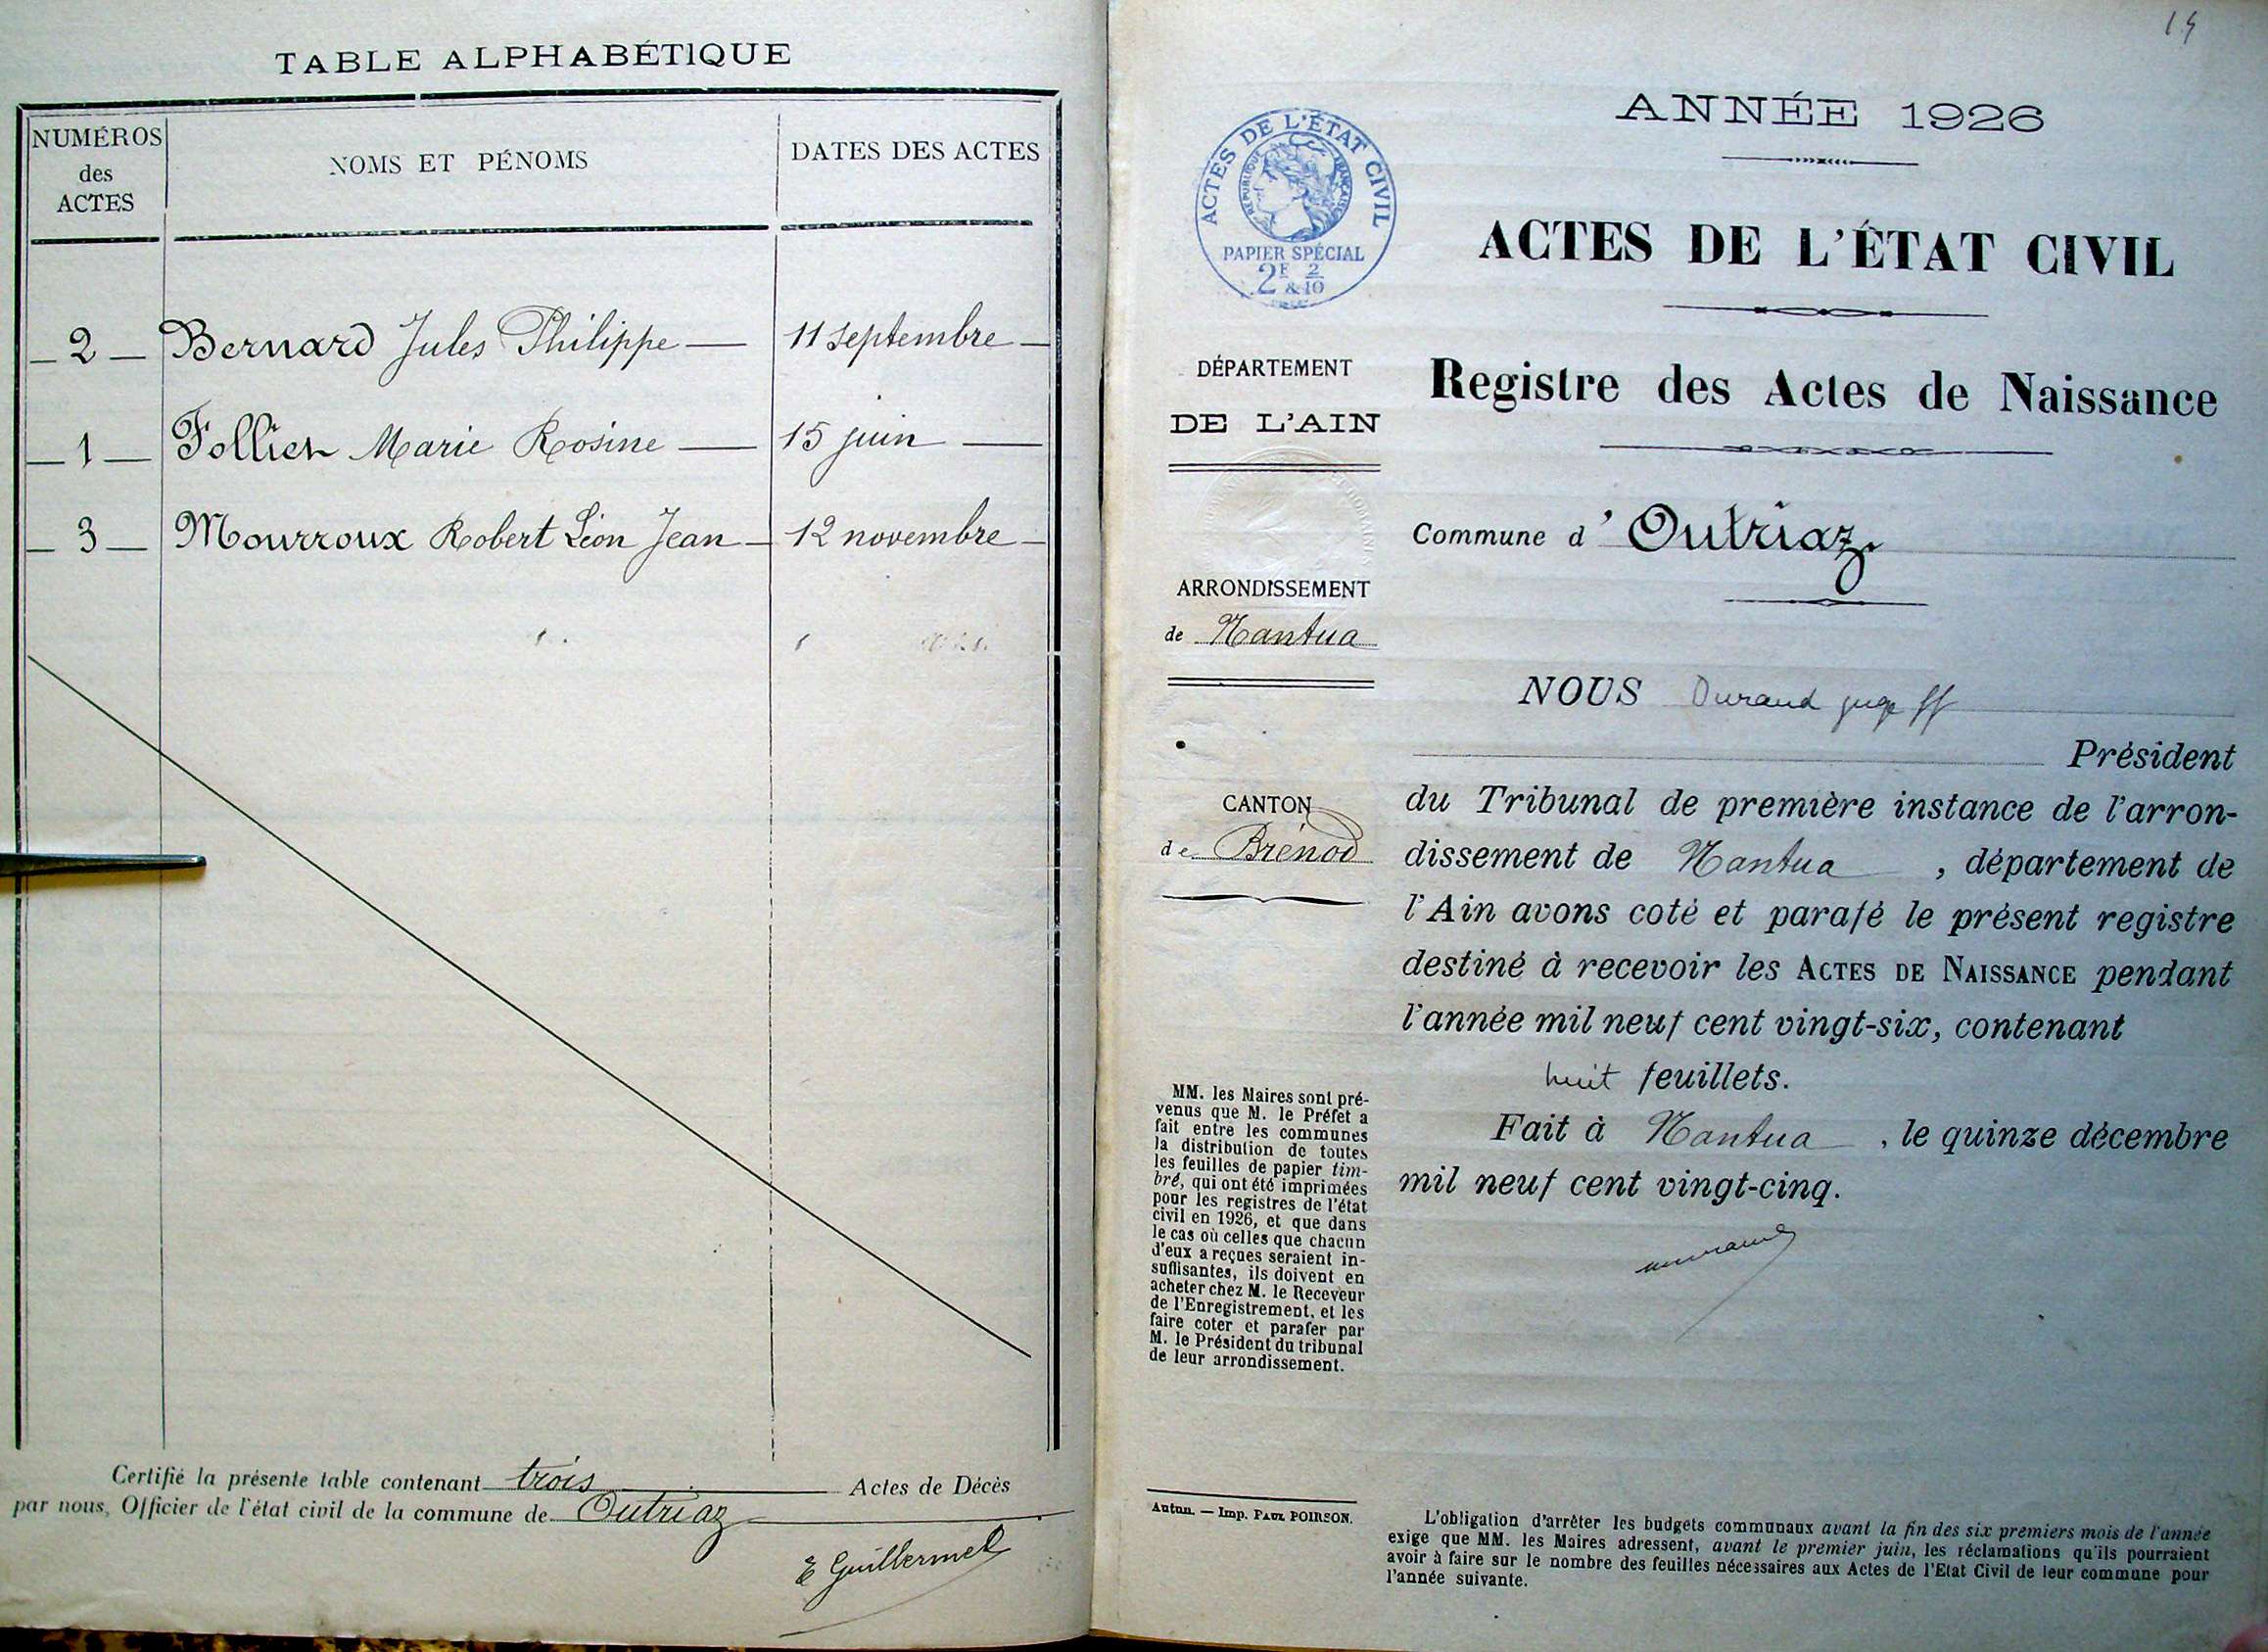 TABLE ALPHABÉTIQUE
NUMÉROS
des
ACTES
NOMS ET PÉNOMS
DATES DES ACTES
2 Bernard Jules Philippe 11 septembre
1 Follier Marie Rosine 15 juin
3 Mourroux Robert Léon Jean 12 novembre
Certifié la présente table contenant trois Actes de Décès
par nous, Officier de l'état civil de la commune de Outriaz
E Guillermet
ANNÉE 1926
ACTES DE L'ÉTAT CIVIL
RÉPUBLIQUE FRANÇAISE
PAPIER SPÉCIAL
2F & 2/10
ACTES DE L'ÉTAT CIVIL
Registre des Actes de Naissance
DÉPARTEMENT
DE L'AIN
ARRONDISSEMENT
de Nantua
CANTON
de Brénod
MM. les Maires sont pré-
venus que M. le Préfet a
fait entre les communes
la distribution de toutes
les feuilles de papier tim-
bré, qui ont été imprimées
pour les registres de l'état
civil en 1926, et que dans
le cas où celles que chacun
d'eux a reçues seraient in-
suffisantes, ils doivent en
acheter chez M. le Receveur
de l'Enregistrement, et les
faire coter et parafer par
M. le Président du tribunal
de leur arrondissement.
Autun. — Imp. PAUL POIRSON.
Commune d'Outriaz
NOUS Durand juge ff
Président
du Tribunal de première instance de l'arron-
dissement de Nantua, département de
l'Ain avons coté et parafé le présent registre
destiné à recevoir les ACTES DE NAISSANCE pendant
l'année mil neuf cent vingt-six, contenant
huit feuillets.
Fait à Nantua, le quinze décembre
mil neuf cent vingt-cinq.
L'obligation d'arrêter les budgets communaux avant la fin des six premiers mois de l'année
exige que MM. les Maires adressent, avant le premier juin, les réclamations qu'ils pourraient
avoir à faire sur le nombre des feuilles nécessaires aux Actes de l'Etat Civil de leur commune pour
l'année suivante.